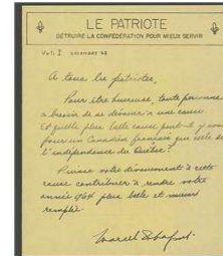 LE PATRIOTE
DÉTRUIRE LA CONFÉDÉRATION POUR MIEUX SERVIR
Vol. I
A tous les patriotes,
Pour être heureuse, toute personne
a besoin de se dévouer à une cause.
Et quelle plus belle cause peut-il y avoir
pour un Canadien français que celle de
l'indépendance du Québec?
Puisse votre dévouement à cette
cause contribuer à rendre votre
année 1964 plus belle et mieux
remplie.
Marcel Chaput